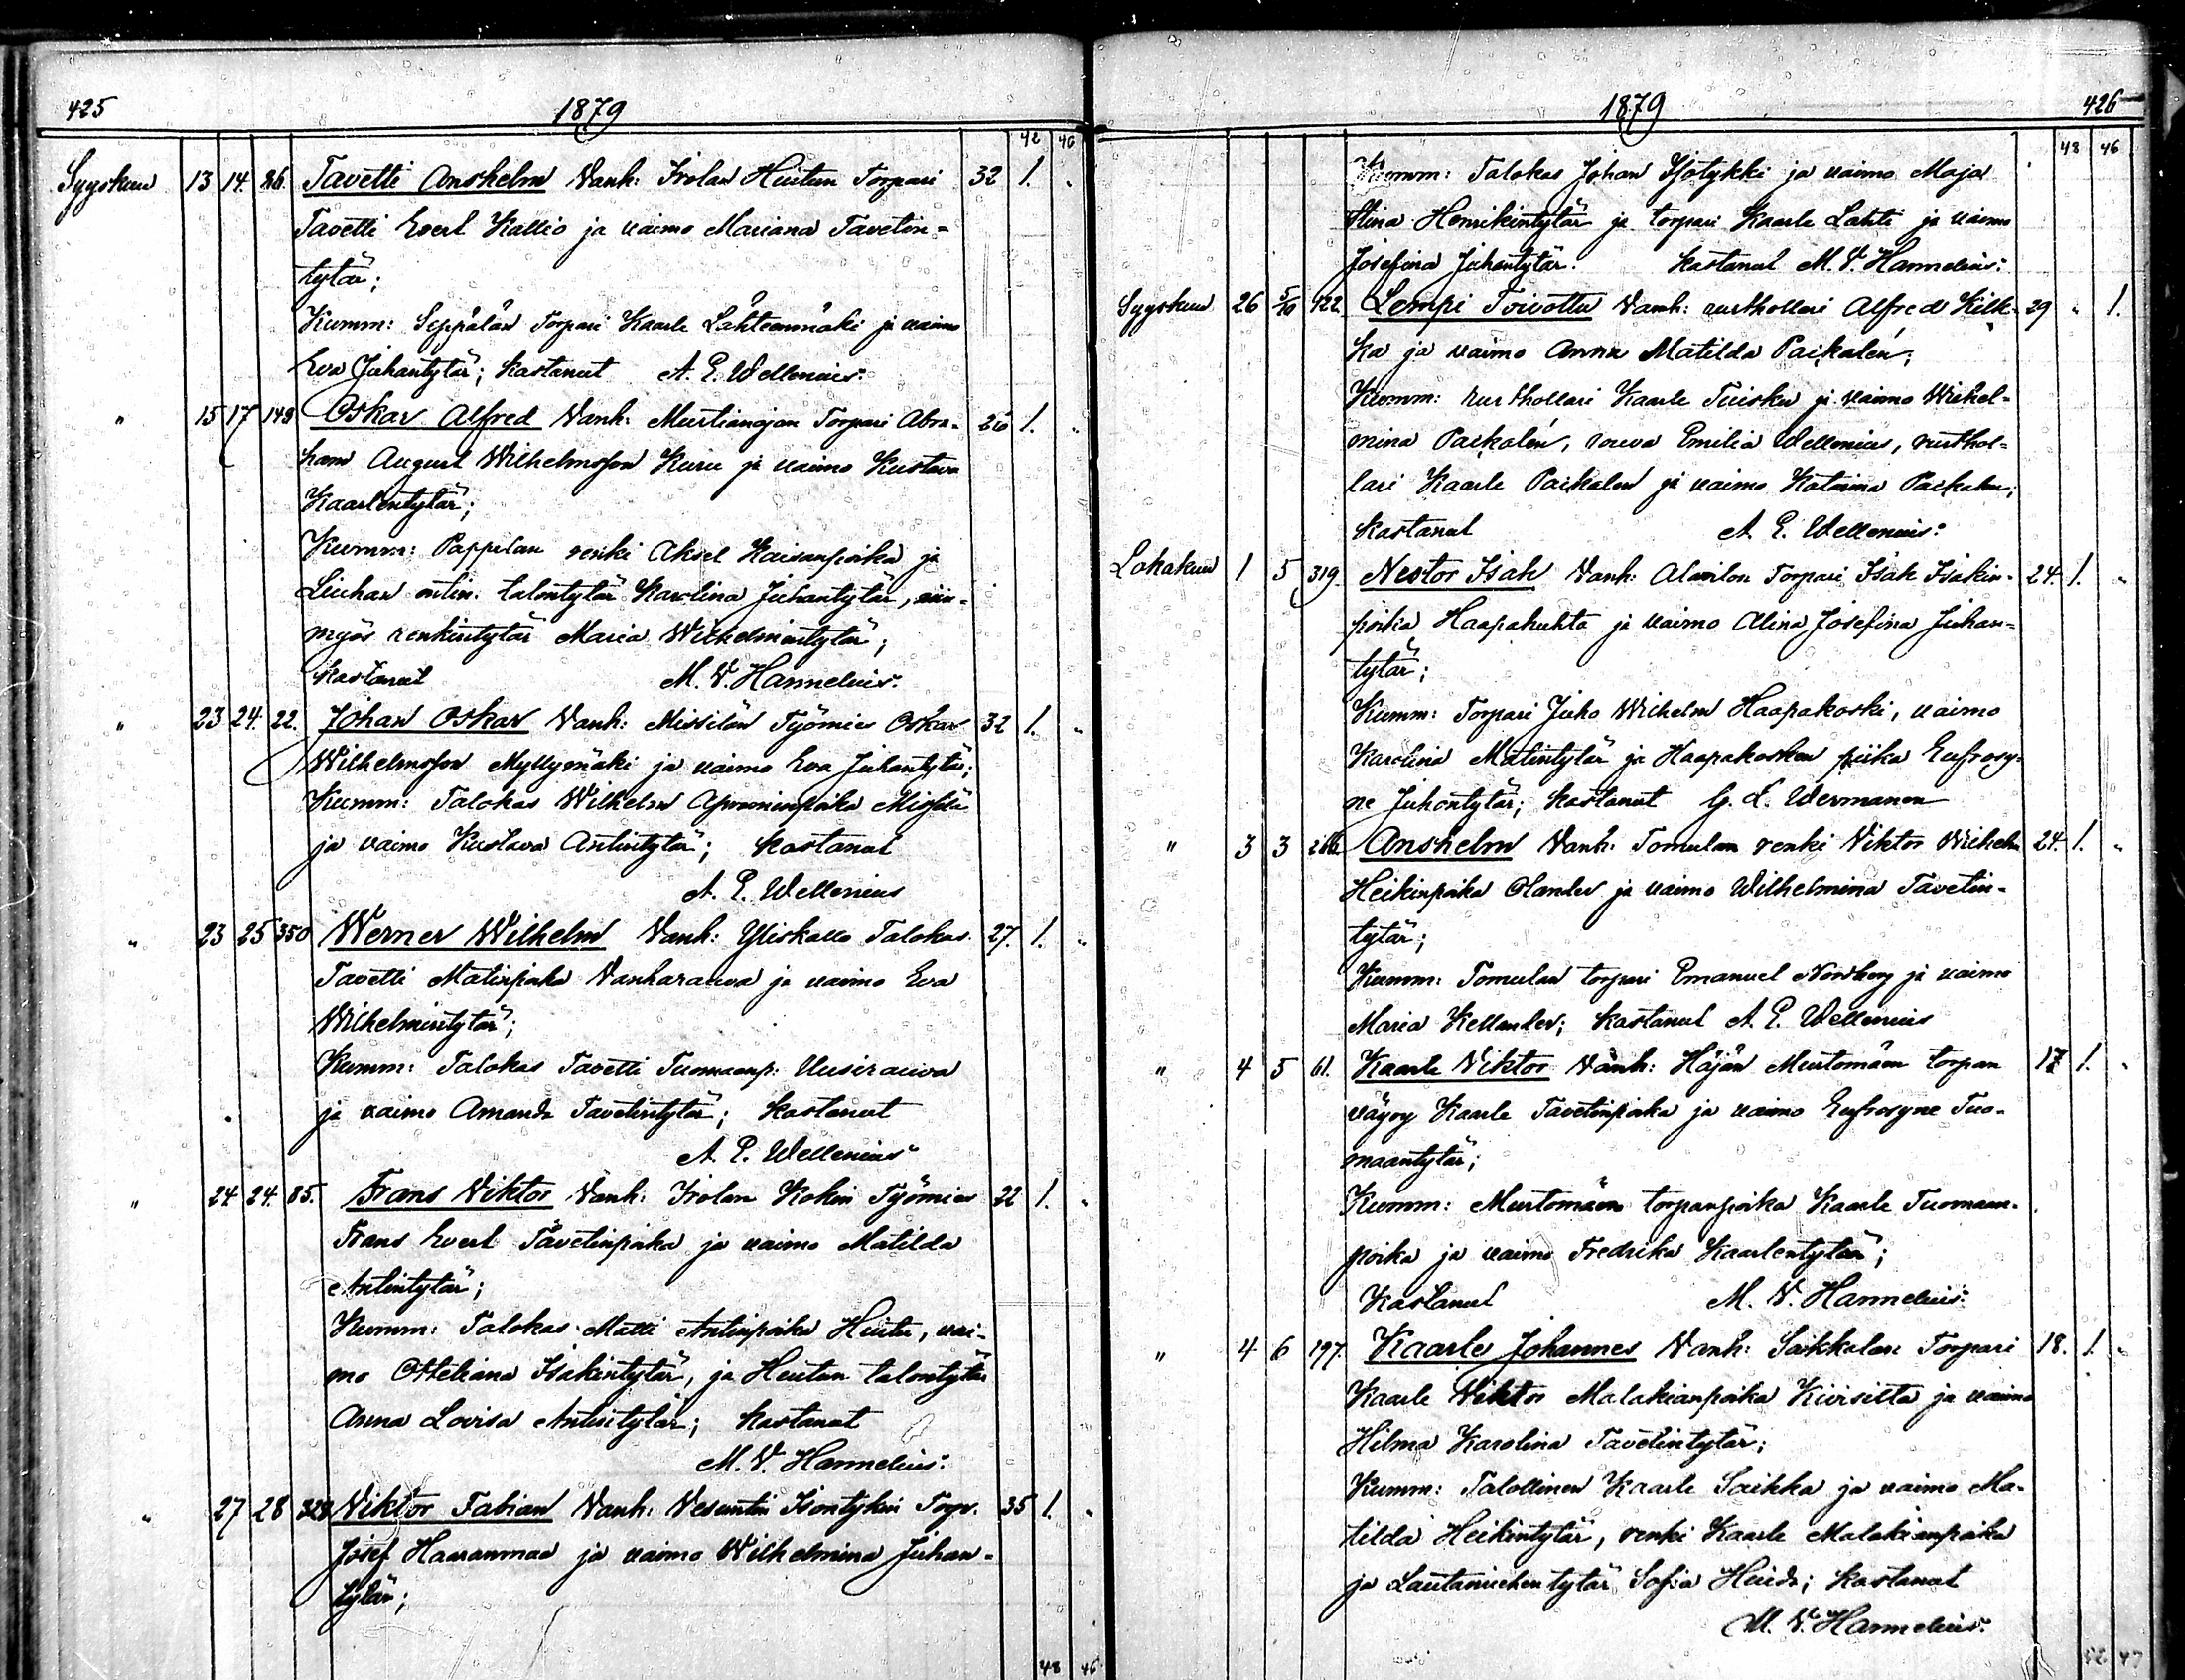 425 1879
42 46
Syyskuu 13 14. 86. Tavetti Anshelm Vanh: Irolan Hiitun Torpari 32 1. "
Tavetti Evert Kallio ja vaimo Mariana Tavetin-
tytär;
Kumm: Seppälän Torpari Kaarle Lähteenmäki ja vaimo
Eva Juhantytär; kastanut A. E. Wellenius.
" 15 17 149 Oskar Alfred Vanh: Murtianojan Torpari Abra- 26 1. "
ham August Wilhelmsson Kuru ja vaimo Kustava
Kaarlentytär;
Kumm: Pappilan renki Aksel Kaisanpoika ja
Liuhan talontytär Karolina Juhantytär, niin-
myös renkintytär Maria Wilhelmintytär;
kastanut M. V. Hannelius.
" 23 24. 22. Johan Oskar Vanh: Missilän Työmies Oskar 32 1. "
Wilhelmsson Myllymäki ja vaimo Eva Juhantytär;
Kumm: Talokas Wilhelm
ja vaimo Kustava Antintytär; kastanut
A. E. Wellenius
" 23 25 350 Werner Wilhelm Vanh: Yliskallo Talokas 27. 1. "
Tavetti Matinpoika Vanharauva ja vaimo Eva
Wilhelmintytär;
Kumm: Talokas Tavetti Tuomaanp: Uusirauva
ja vaimo Amanda Tavetintytär; kastanut
A. E. Wellenius
" 24 24. 85. Frans Viktor Vanh: Irolan Kokin Työmies 22 1. "
Frans Evert Tavetinpoika ja vaimo Matilda
Antintytär;
Kumm: Talokas Matti Antinpoika Hiitu, vai-
mo Otteliana Isakintytär, ja Hiitun talontytär
Anna Lovisa Antintytär; kastanut
M. V. Hannelius.
" 27 28 328 Viktor Fabian Vanh: Vesuntin Isontykin Torp. 35 1. "
Josef Haaranmaa ja vaimo Wilhelmina Juhan-
tytär;
48 46
1879 426
48 46
Kumm: Talokas Johan Isotykki ja vaimo Maja
Stina Henrikintytär ja torpari Kaarle Lahti ja vaimo
Josefina Juhantytär. kastanut M. V. Hannelius.
Syyskuu 26 5/10 122. Lempi Toivottu Vanh: rusthollari Alfred Kilk- 29 " 1.
ka ja vaimo Anna Matilda Paikalén;
Kumm: rusthollari Kaarle Tuisku ja vaimo Wilhel-
mina Paikalén, rouva Emilia Wellenius, rusthol-
lari Kaarle Paikalen ja vaimo Katarina Paikalen;
kastanut A. E. Wellenius.
Lokakuu 1 5 319. Nestor Isak Vanh: Alasilon Torpari Isak Isakin- 24. 1. "
poika Haapahuhta ja vaimo Alina Josefina Juhan-
tytär;
Kumm: Torpari Juho Wilhelm Haapakoski, vaimo
Karolina Matintytär ja Haapakosken piika Eufrosy-
ne Juhontytär; kastanut G. L. Wermanen
" 3 3 266. Anshelm Vanh: Tomulan renki Viktor Wilhelm 24. 1. "
Heikinpoika Olander ja vaimo Wilhelmina Tavetin-
tytär;
Kumm: Tomulan torpari Emanuel Nordberg ja vaimo
Maria Kellander; kastanut A. E. Wellenius
" 4 5 61. Kaarle Viktor Vanh: Höjän Murtomäen torpan 17 1. "
vävy Kaarle Tavetinpoika ja vaimo Eufrosyne Tuo-
maantytär;
Kumm: Murtomäen torpanpoika Kaarle Tuomaan-
poika ja vaimo Fredrika Kaarlentytär;
Kastanut M. V. Hannelius.
" 4 6 197. Kaarle Johannes Vanh: Saikkalan Torpari 18. 1. "
Kaarle Viktor Malakianpoika Kivisilta ja vaimo
Hilma Karolina Tavetintytär;
Kumm: Talollinen Kaarle Saikka ja vaimo Ma-
tilda Heikintytär, renki Kaarle Malakianpoika
ja Lautamiehen tytär Sofia Heida; kastanut
M. V. Hannelius.
52 47